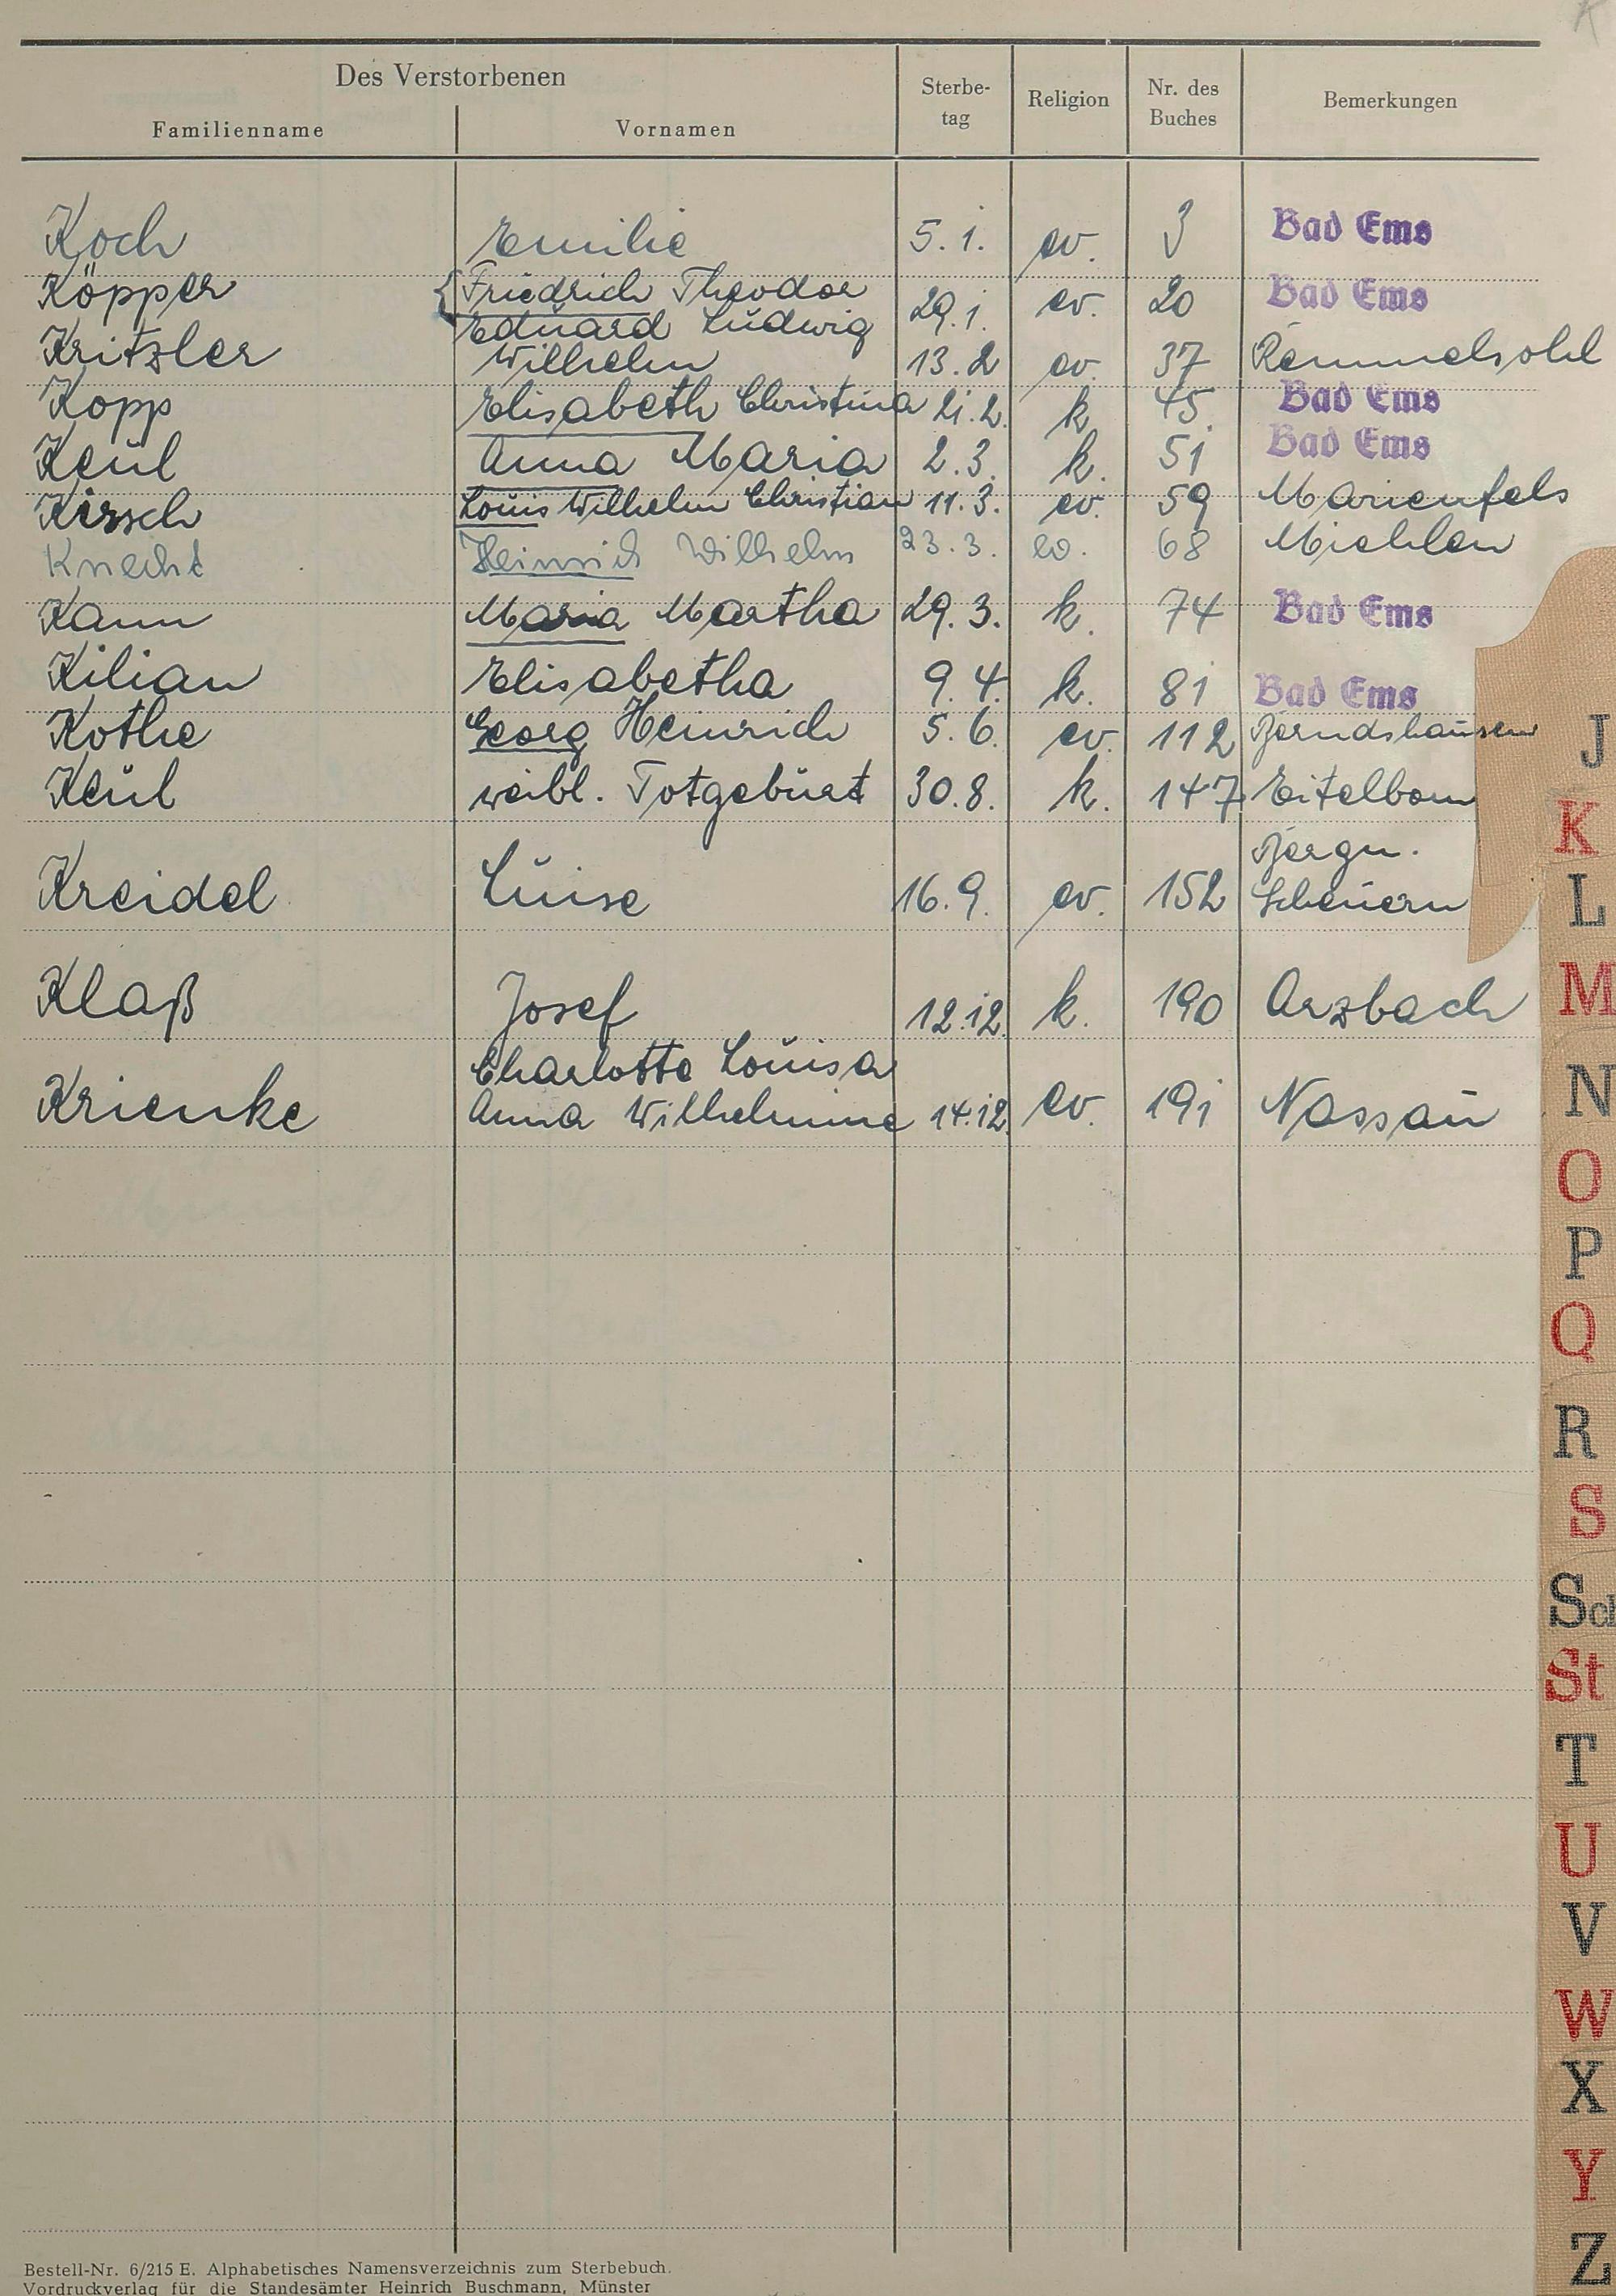 K
Des Verstorbenen
Familienname Vornamen Sterbe-tag Religion Nr. des Buches Bemerkungen
Koch Emilie 5.1. ev. 3 Bad Ems
Köpper {Friedrich Theodor Eduard Ludwig 29.1. ev. 20 Bad Ems
Kritzler Wilhelm 13.2 ev. 37
Kopp Elisabeth Christina 21.2. k 45 Bad Ems
Keul Anna Maria 2.3. k. 51 Bad Ems
Kirsch Louis Wilhelm Christian 11.3. ev. 59 Marienfels
Knecht Heinrich Wilhelm 23.3. ev. 68 Miehlen
Kann Maria Martha 29.3. k. 74 Bad Ems
Kilian Elisabetha 9.4. k. 81 Bad Ems
Kothe Georg Heinrich 5.6. ev. 112 Berndshausen
Keul weibl. Totgeburt 30.8. k. 147 Eitelborn
Kreidel Luise 16.9. ev. 152 Bergn. Scheuern
Klaß Josef 12.12. k. 190 Arzbach
Krienke Charlotte Louisa Anna Wilhelmine 14.12. ev. 191 Nassau
J
K
L
M
N
O
P
Q
R
S
Sch
St
T
U
V
W
X
Y
Z
Bestell-Nr. 6/215 E. Alphabetisches Namensverzeichnis zum Sterbebuch.
Vordruckverlag für die Standesämter Heinrich Buschmann, Münster